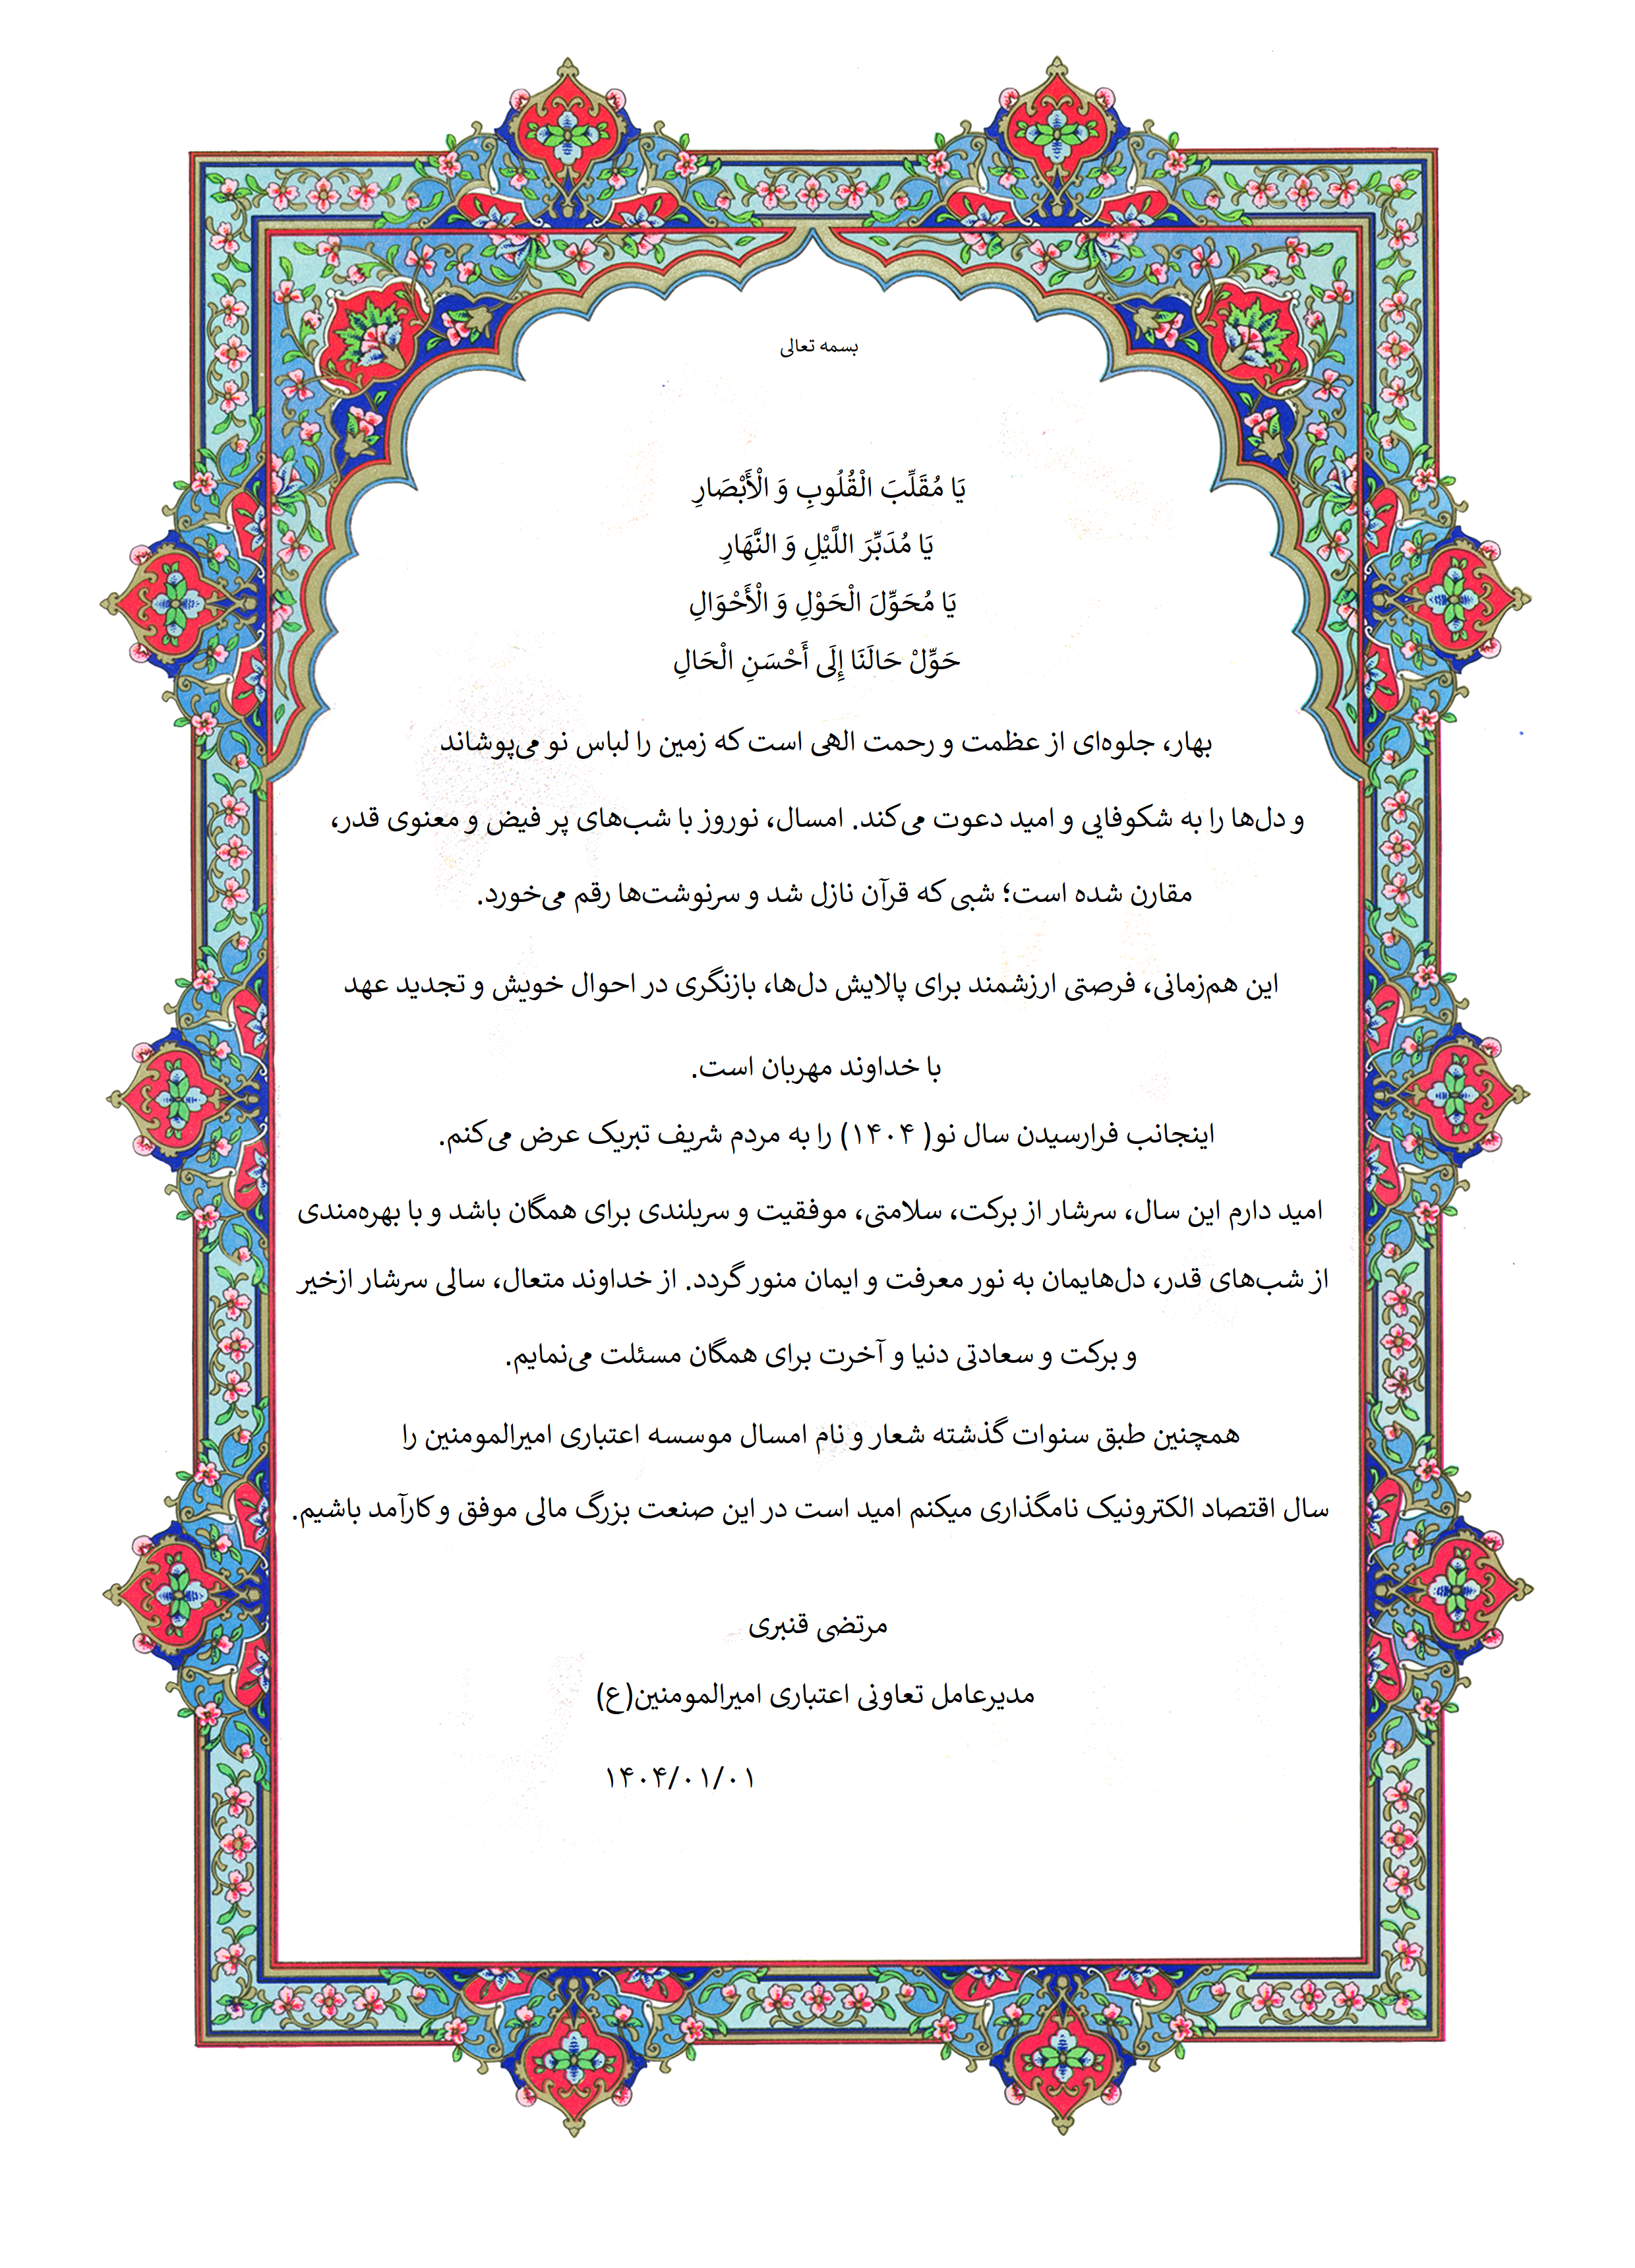 بسمه تعالی
يَا مُقَلِّبَ الْقُلُوبِ وَ الْأَبْصَارِ
يَا مُدَبِّرَ اللَّيْلِ وَ النَّهَارِ
يَا مُحَوِّلَ الْحَوْلِ وَ الْأَحْوَالِ
حَوِّلْ حَالَنَا إِلَى أَحْسَنِ الْحَالِ
بهار، جلوه‌ای از عظمت و رحمت الهی است که زمین را لباس نو می‌پوشاند
و دل‌ها را به شکوفایی و امید دعوت می‌کند. امسال، نوروز با شب‌های پر فیض و معنوی قدر،
مقارن شده است؛ شبی که قرآن نازل شد و سرنوشت‌ها رقم می‌خورد.
این هم‌زمانی، فرصتی ارزشمند برای پالایش دل‌ها، بازنگری در احوال خویش و تجدید عهد
با خداوند مهربان است.
اینجانب فرارسیدن سال نو( ۱۴۰۴) را به مردم شریف تبریک عرض می‌کنم.
امید دارم این سال، سرشار از برکت، سلامتی، موفقیت و سربلندی برای همگان باشد و با بهره‌مندی
از شب‌های قدر، دل‌هایمان به نور معرفت و ایمان منور گردد. از خداوند متعال، سالی سرشار ازخیر
و برکت و سعادتی دنیا و آخرت برای همگان مسئلت می‌نمایم.
همچنین طبق سنوات گذشته شعار و نام امسال موسسه اعتباری امیرالمومنین را
سال اقتصاد الکترونیک نامگذاری میکنم امید است در این صنعت بزرگ مالی موفق و کارآمد باشیم.
مرتضی قنبری
مدیرعامل تعاونی اعتباری امیرالمومنین(ع)
۱۴۰۴/۰۱/۰۱